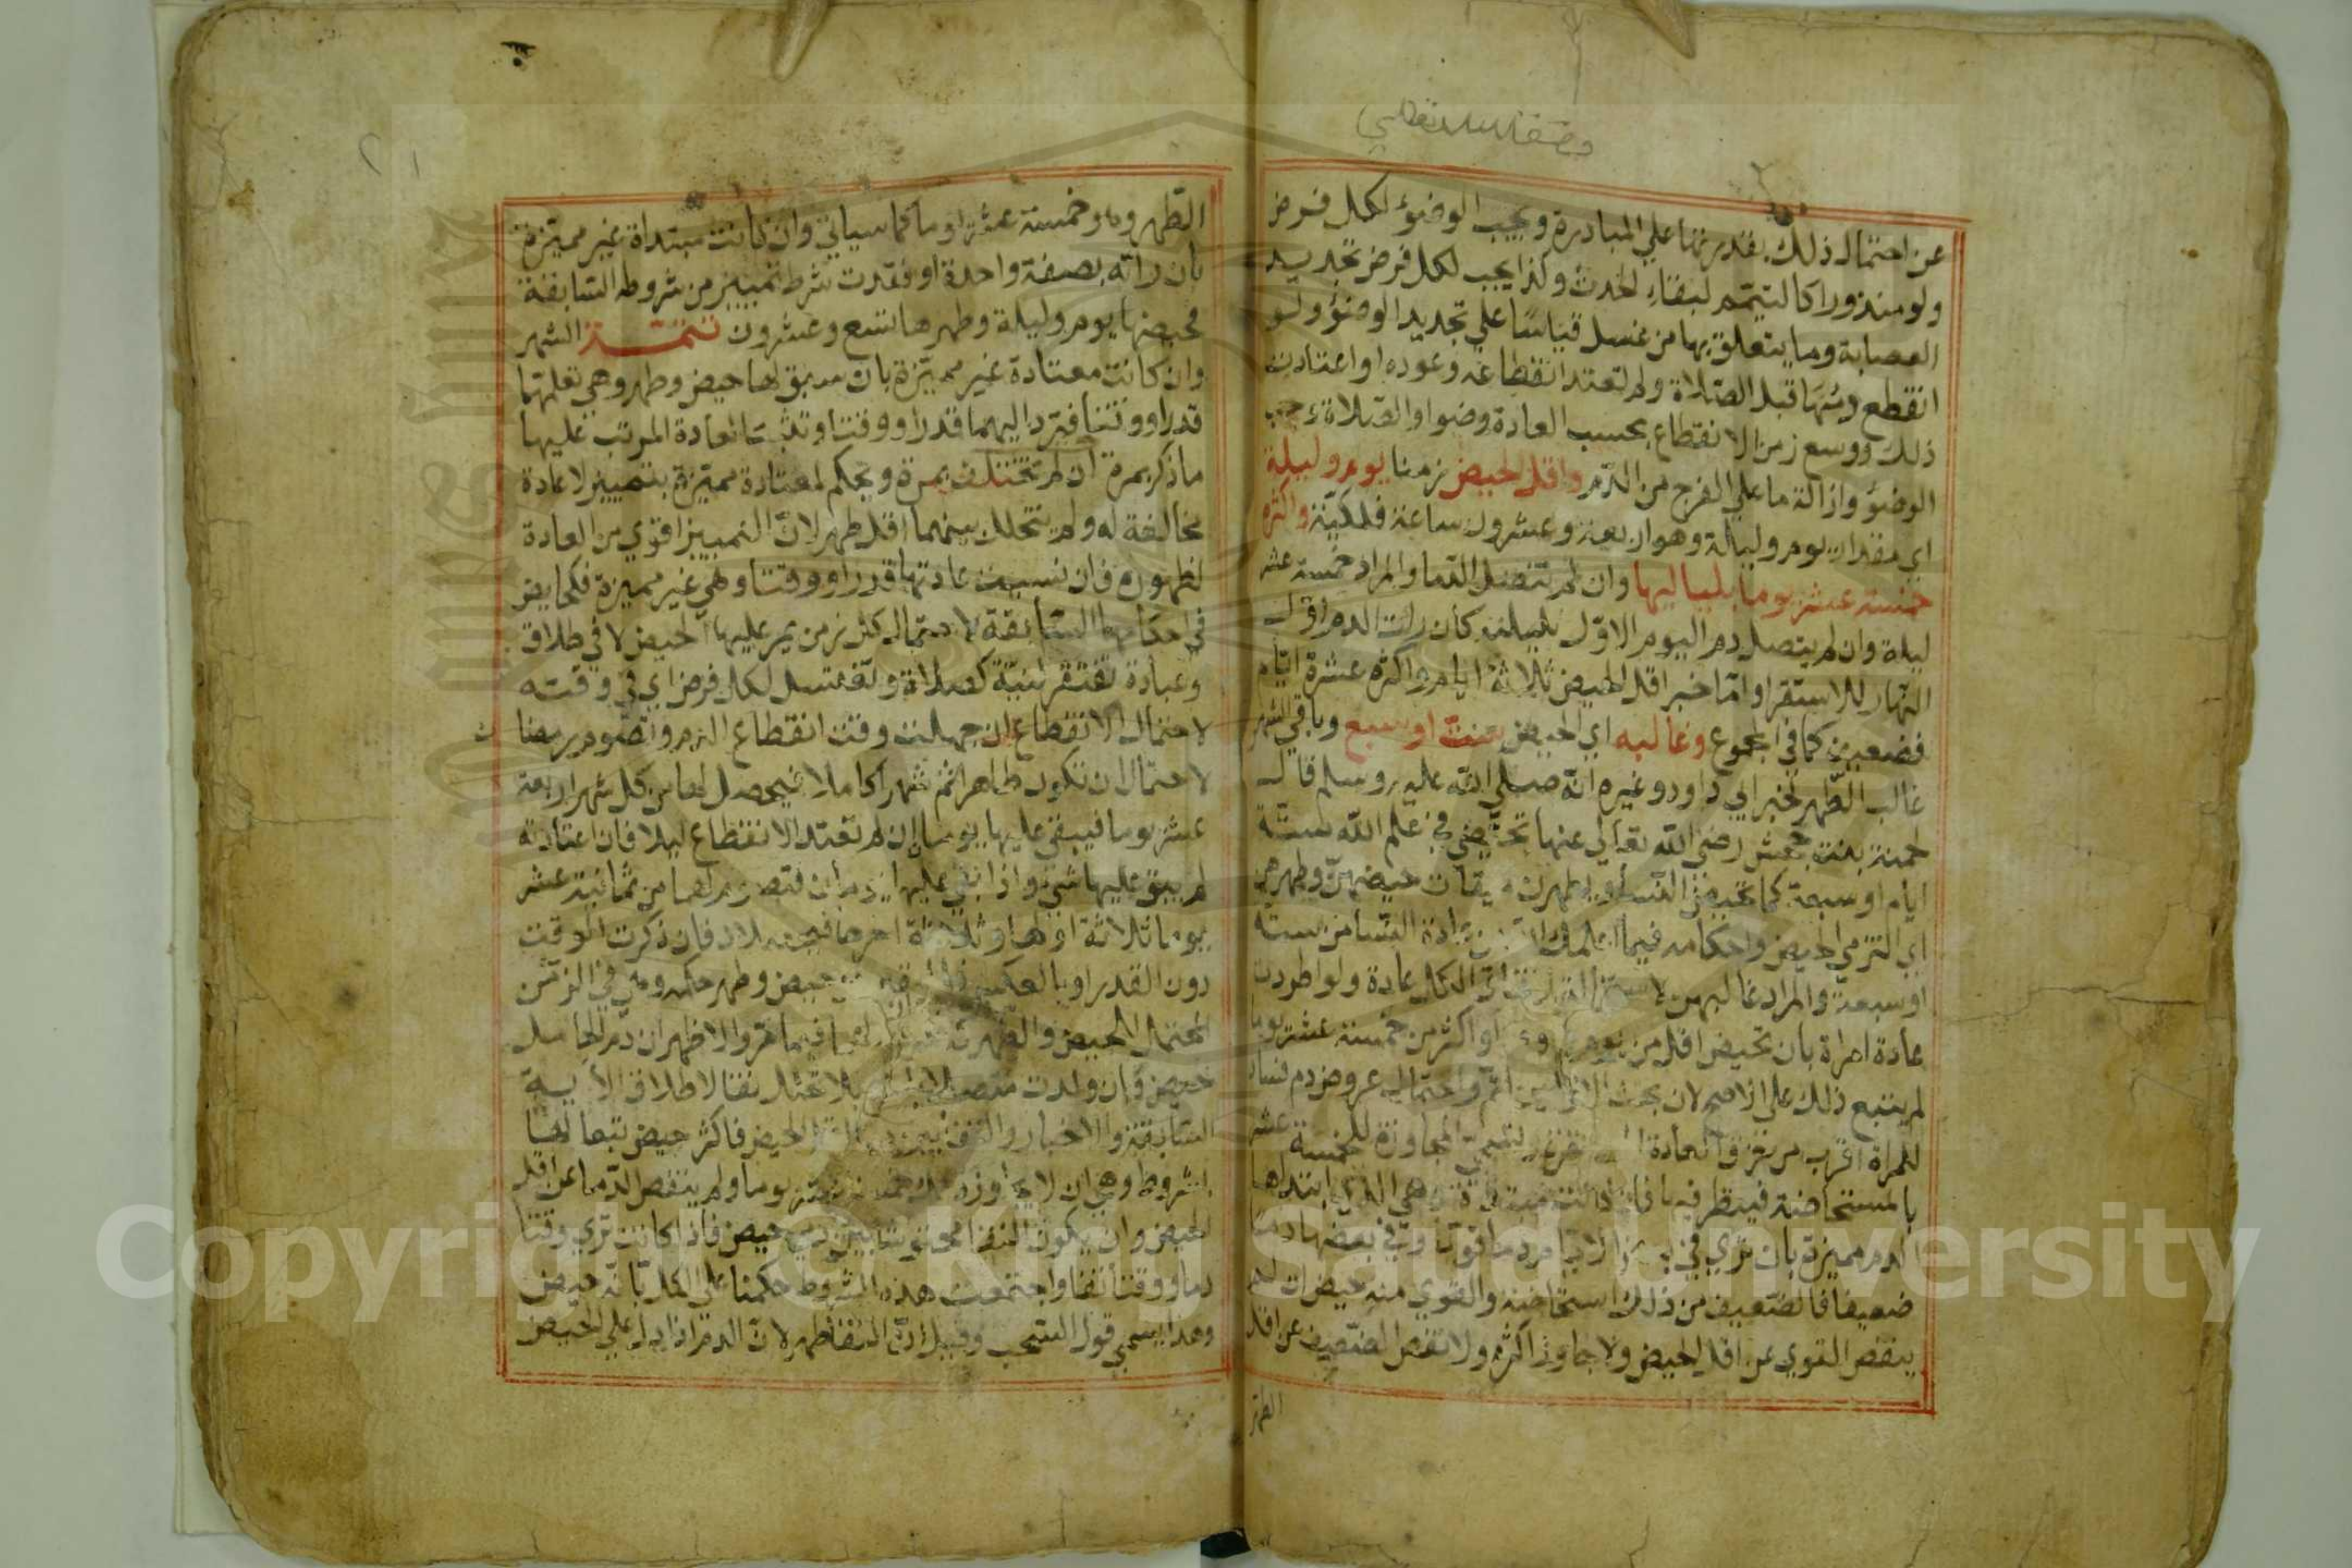 عن احتمال ذلك بقدرتها علي المبادرة ويجب الوضوء لكل فرض
ولو منذورا كالتيمم لبقاء الحدث وكذا يجب لكل فرض تجديد
العصابة وما يتعلق بها من غسل قياسا علي تجديد الوضوء ولو
انقطع دمها قبل الصلاة ولم تعتد انقطاعه وعوده او اعتادت
ذلك ووسع زمن الانقطاع بحسب العادة وضوا والصلاة وجب
الوضوء وازالة ما علي الفرج من الدم واقل الحيض زمنا يوم وليلة
اي مقدار يوم وليلة وهو اربعة وعشرون ساعة فلكية واكثره
خمسة عشر يوما بلياليها وان لم تتصل الدما والمراد خمسة عشر
ليلة وان لم يتصل دم اليوم الاول بليلته كان رات الدم اول
النهار للاستقرا واما خبر اقل الحيض ثلاثة ايام واكثره عشرة ايام
فضعيف كما في المجموع وغالبه اي الحيض ست او سبع وباقي الشهر
غالب الطهر لخبر ابي داود وغيره انه صلي الله عليه وسلم قال
لحمنة بنت جحش رضي الله تعالي عنها تحيضي في علم الله ستة
ايام او سبعة كما تحيض النسا ويطهرن ميقات حيضهن وطهرهن
اي التزمي الحيض واحكامه فيما اعلمك الله من عادة النسا من ستة
او سبعة والمراد غالبهن لاستحالة اتفاق الكل عادة ولو اطردت
عادة امراة بان تحيض اقل من يوم وليلة او اكثر من خمسة عشر يوما
لم يتبع ذلك علي الاصح لان بحث الاولين اتم واحتمال عروض دم فساد
للمراة اقرب من خرق العادة المستقرة وتسمي المجاوزة للخمسة عشر
بالمستحاضة فينظر فيها فان كانت مبتداة وهي التي ابتداها
الدم مميزة بان تري في بعض الايام دما قويا وفي بعضها دما
ضعيفا فالضعيف من ذلك استحاضة والقوي منه حيض ان لم
ينقص القوي عن اقل الحيض ولا جاوز اكثره ولا نقص الضعيف عن اقل
الطهر
الطهر وهو خمسة عشر يوما كما سياتي وان كانت مبتداة غير مميزة
بان راته بصفة واحدة او فقدت شرط تمييز من شروطه السابقة
فحيضها يوم وليلة وطهرها تسع وعشرون تتمة الشهر
وان كانت معتادة غير مميزة بان سبق لها حيض وطهر وهي تعلمهما
قدرا ووقتا فترد اليهما قدرا ووقتا وتثبت العادة المرتب عليها
ما ذكر بمرة ان لم تختلف بمرة ويحكم لمعتادة مميزة بتمييز لا عادة
مخالفة له ولم يتخلل بينهما اقل طهر لان التمييز اقوي من العادة
لظهوره فان نسيت عادتها قدرا ووقتا وهي غير مميزة فكحايض
في احكامها السابقة لاحتمال كل زمن يمر عليها الحيض لا في طلاق
وعبادة تفتقر لنية كصلاة وتغتسل لكل فرض اي في وقته
لاحتمال الانقطاع ان جهلت وقت انقطاع الدم وتصوم رمضان
لاحتمال ان تكون طاهرا ثم شهرا كاملا فيحصل لها من كل شهر اربعة
عشر يوما فيبقي عليها يومان ان لم تعتد الانقطاع ليلا فان اعتادته
لم يبق عليها شي واذا بقي عليها يومان فتصوم لهما من ثمانية عشر
يوما ثلاثة اولها وثلاثة اخرها فيحصلان فان ذكرت الوقت
دون القدر او بالعكس فلليقين من حيض وطهر حكمه وهي في الزمن
المحتمل للحيض والطهر كناسية لهما فيما مر والاظهر ان دم الحامل
حيض وان ولدت متصلا باخره بلا تخلل نقا لاطلاق الاية
السابقة والاخبار والنقا بين دما اقل الحيض فاكثر حيض تبعا لها
بشروط وهي ان لا يجاوز ذلك خمسة عشر يوما ولم ينقص الدما عن اقل
الحيض وان يكون النقا محتوشا بين دمي حيض فاذا كانت تري وقتا
دما ووقتا نقا واجتمعت هذه الشروط حكمنا علي الكل بانه حيض
وهذا يسمي قول السحب وقيل ان النقا طهر لان الدم اذا دل علي الحيض